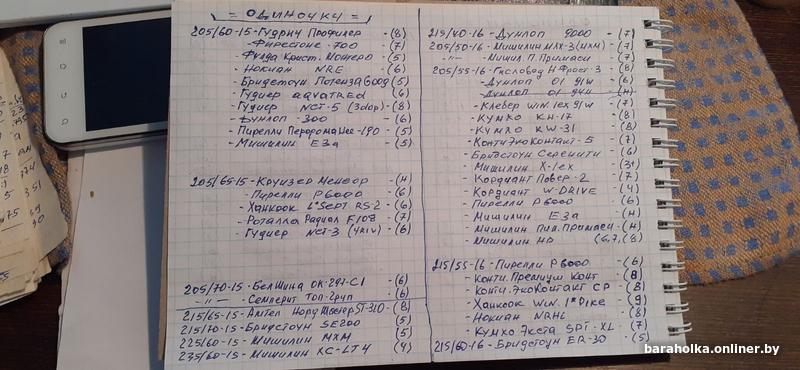 = ОДИНОЧКИ =
205/60-15-Гудрич Профилер -(8)
-Фирестоне 700 (7)
-Фулда Крист. Монтеро (5)
-Нокиан NRE (6)
-Бридгстоун Потенза G009 (5)
-Гудиер AQVATREd (6)
-Гудиер NCT-5 (3дор) -(8)
-Дунлоп -300 (6)
-Пирелли Перформанс -190 (5)
-Мишилин Е3а (5)
205/65-15-Круизер Менеор -(н)
-Пирелли P6000 (6)
-Ханкоок I*SEPT RS-2 (6)
-Роталла Радиал F108 (7)
-Гудиер NCT-3 (4kiv) -(6)
205/70-15-БелШина ОК-297-С1 (6)
-"- Семперит Топ-Грип (6)
215/65-15-Амтел НордМастер ST-310 -(8)
215/70-15-Бридстоун SE200 (5)
225/60-15-Мишилин МХМ (5)
235/60-15-Мишилин XC-LT4 (4)
215/40-16-Дунлоп 9000 -(7)
205/50-16-Мишилин МЛХ-3 (МХМ) (7)
-"- Мишил П. Примаси (7)
205/55-16-Гисловед Н Фрост-3 (8)
-Дунлоп 01 91W (6)
-Дунлоп 01 94H (н)
-Клебер WIN 1ex 91W (7)
-Кумхо KH-17 (8)
-Кумхо KW-31 (8)
-КонтиЭкоКонтакт-5 (7)
-Бридстоун Серенити (6)
-Мишилин X-1ex (3+)
-Кордиант Повер-2 (7)
-Кордиант W-DRIVE (4)
-Пирелли P6000 (6)
-Мишилин Е3а -(н)
-Мишилин Пил. Примаси -(н)
-Мишилин HD (6,7,(8)
215/55-16-Пирелли P6000 -(6)
-Конти.Премиум Конт (8)
-Конти.ЭкоКонтакт CP -(8)
-Ханкоок WiN. I*Pike -(9)
-Нокиан NRHL -(8)
-Кумхо Экста SPT-XL (7)
215/60-16-Бридстоун ER-30 -(5)
baraholka.onliner.by